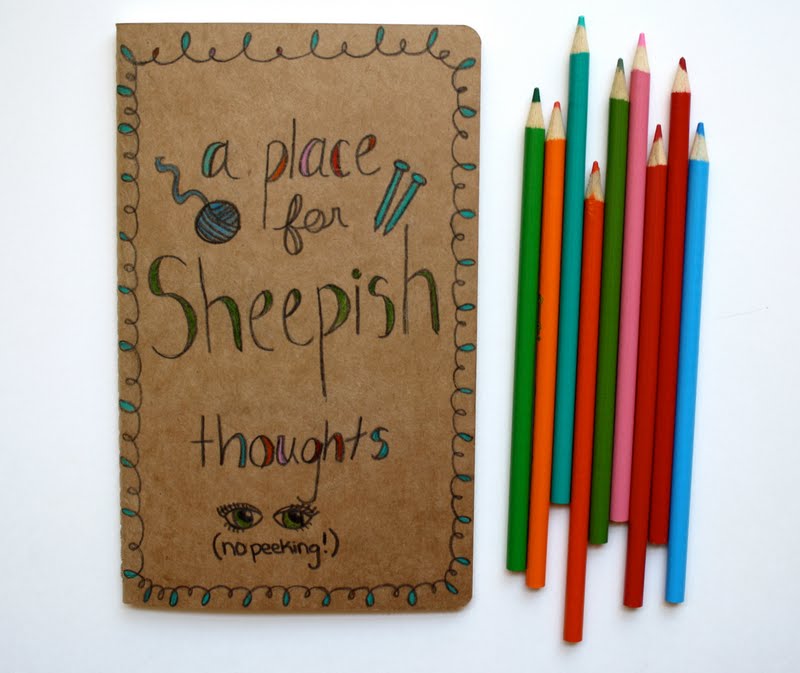 a place
for
Sheepish
thoughts
(no peeking!)